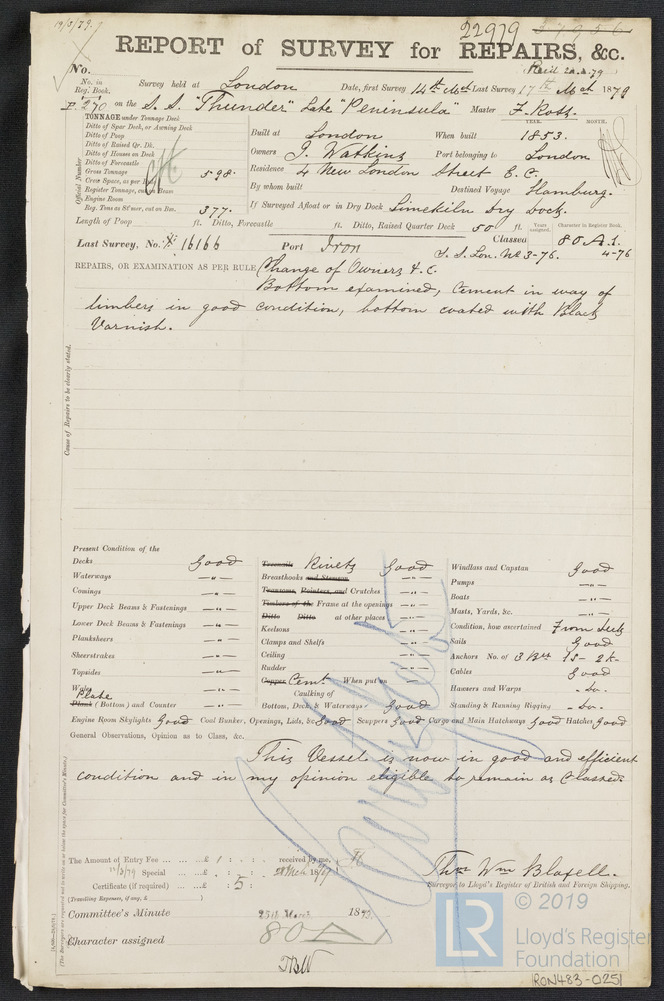 19/3/79.
22979 27956
REPORT of SURVEY for REPAIRS, &c.
No.
Rec'd 20.3.79
No. in Reg. Book. Survey held at London Date, first Survey 14th Mch Last Survey 17th Mch 1879
P. 270 on the S.S. "Thunder" Late "Peninsula" Master F. Ross.
TONNAGE under Tonnage Deck
Ditto of Spar Deck, or Awning Deck
Ditto of Poop
Ditto of Raised Qr. Dk.
Ditto of Houses on Deck
Ditto of Forecastle
Gross Tonnage 598.
Crew Space, as per
Register Tonnage, out on Beam
Engine Room
Reg. Tons as St'mer, cut on Bm. 377.
Official Number
YEAR. MONTH.
Built at London When built 1853.
Owners J. Watkins Port belonging to London
Residence 4 New London Street E.C.
By whom built Destined Voyage Hamburg.
If Surveyed Afloat or in Dry Dock Limekiln Dry Dock.
Length of Poop ft. Ditto, Forecastle ft. Ditto, Raised Quarter Deck 50 ft. Years assigned. Character in Register Book.
Last Survey, No. 16166 Port Iron Classed 80 A.1.
S.S. Lon. No 3-76. 4-76
REPAIRS, OR EXAMINATION AS PER RULE Change of Owners &c.
Bottom examined, Cement in way of
limbers in good condition, bottom coated with Black
Varnish.
Cause of Repairs to be clearly stated.
Present Condition of the
Decks Good
Waterways — " —
Comings — " —
Upper Deck Beams & Fastenings — " —
Lower Deck Beams & Fastenings — " —
Planksheers — " —
Sheerstrakes — " —
Topsides — " —
Wales — " —
Plate
Plank (Bottom) and Counter — " —
Treenails Rivets Good
Breasthooks and Stemson — " —
Transoms, Pointers, and Crutches — " —
Timbers of the Frame at the openings — " —
Ditto Ditto at other places — " —
Keelsons — " —
Clamps and Shelfs — " —
Ceiling — " —
Rudder — " —
Copper Cemt. When put on
Caulking of
Bottom, Deck, & Waterways Good
Windlass and Capstan Good
Pumps — " —
Boats — " —
Masts, Yards, &c. — " —
Condition, how ascertained From deck
Sails Good
Anchors No. of 3 Brs 1S - 2K-
Cables Good
Hawsers and Warps - Do. -
Standing & Running Rigging - Do. -
Engine Room Skylights Good Coal Bunker, Openings, Lids, &c. Good Scuppers Good Cargo and Main Hatchways Good Hatches Good
General Observations, Opinion as to Class, &c.
This Vessel is now in good and efficient
condition and in my opinion eligible to remain as Classed.
The Amount of Entry Fee ... ... ... £ 1 : : received by me,
Special ... ... £ : :
Certificate (if required) ... £ : 5 :
(Travelling Expenses, if any, £ )
Thos Wm Blaxell.
Surveyor to Lloyd's Register of British and Foreign Shipping.
Committee's Minute 25th March 1879
Character assigned 80 A
© 2019
LR
Lloyd's Register
Foundation
RON483-0251